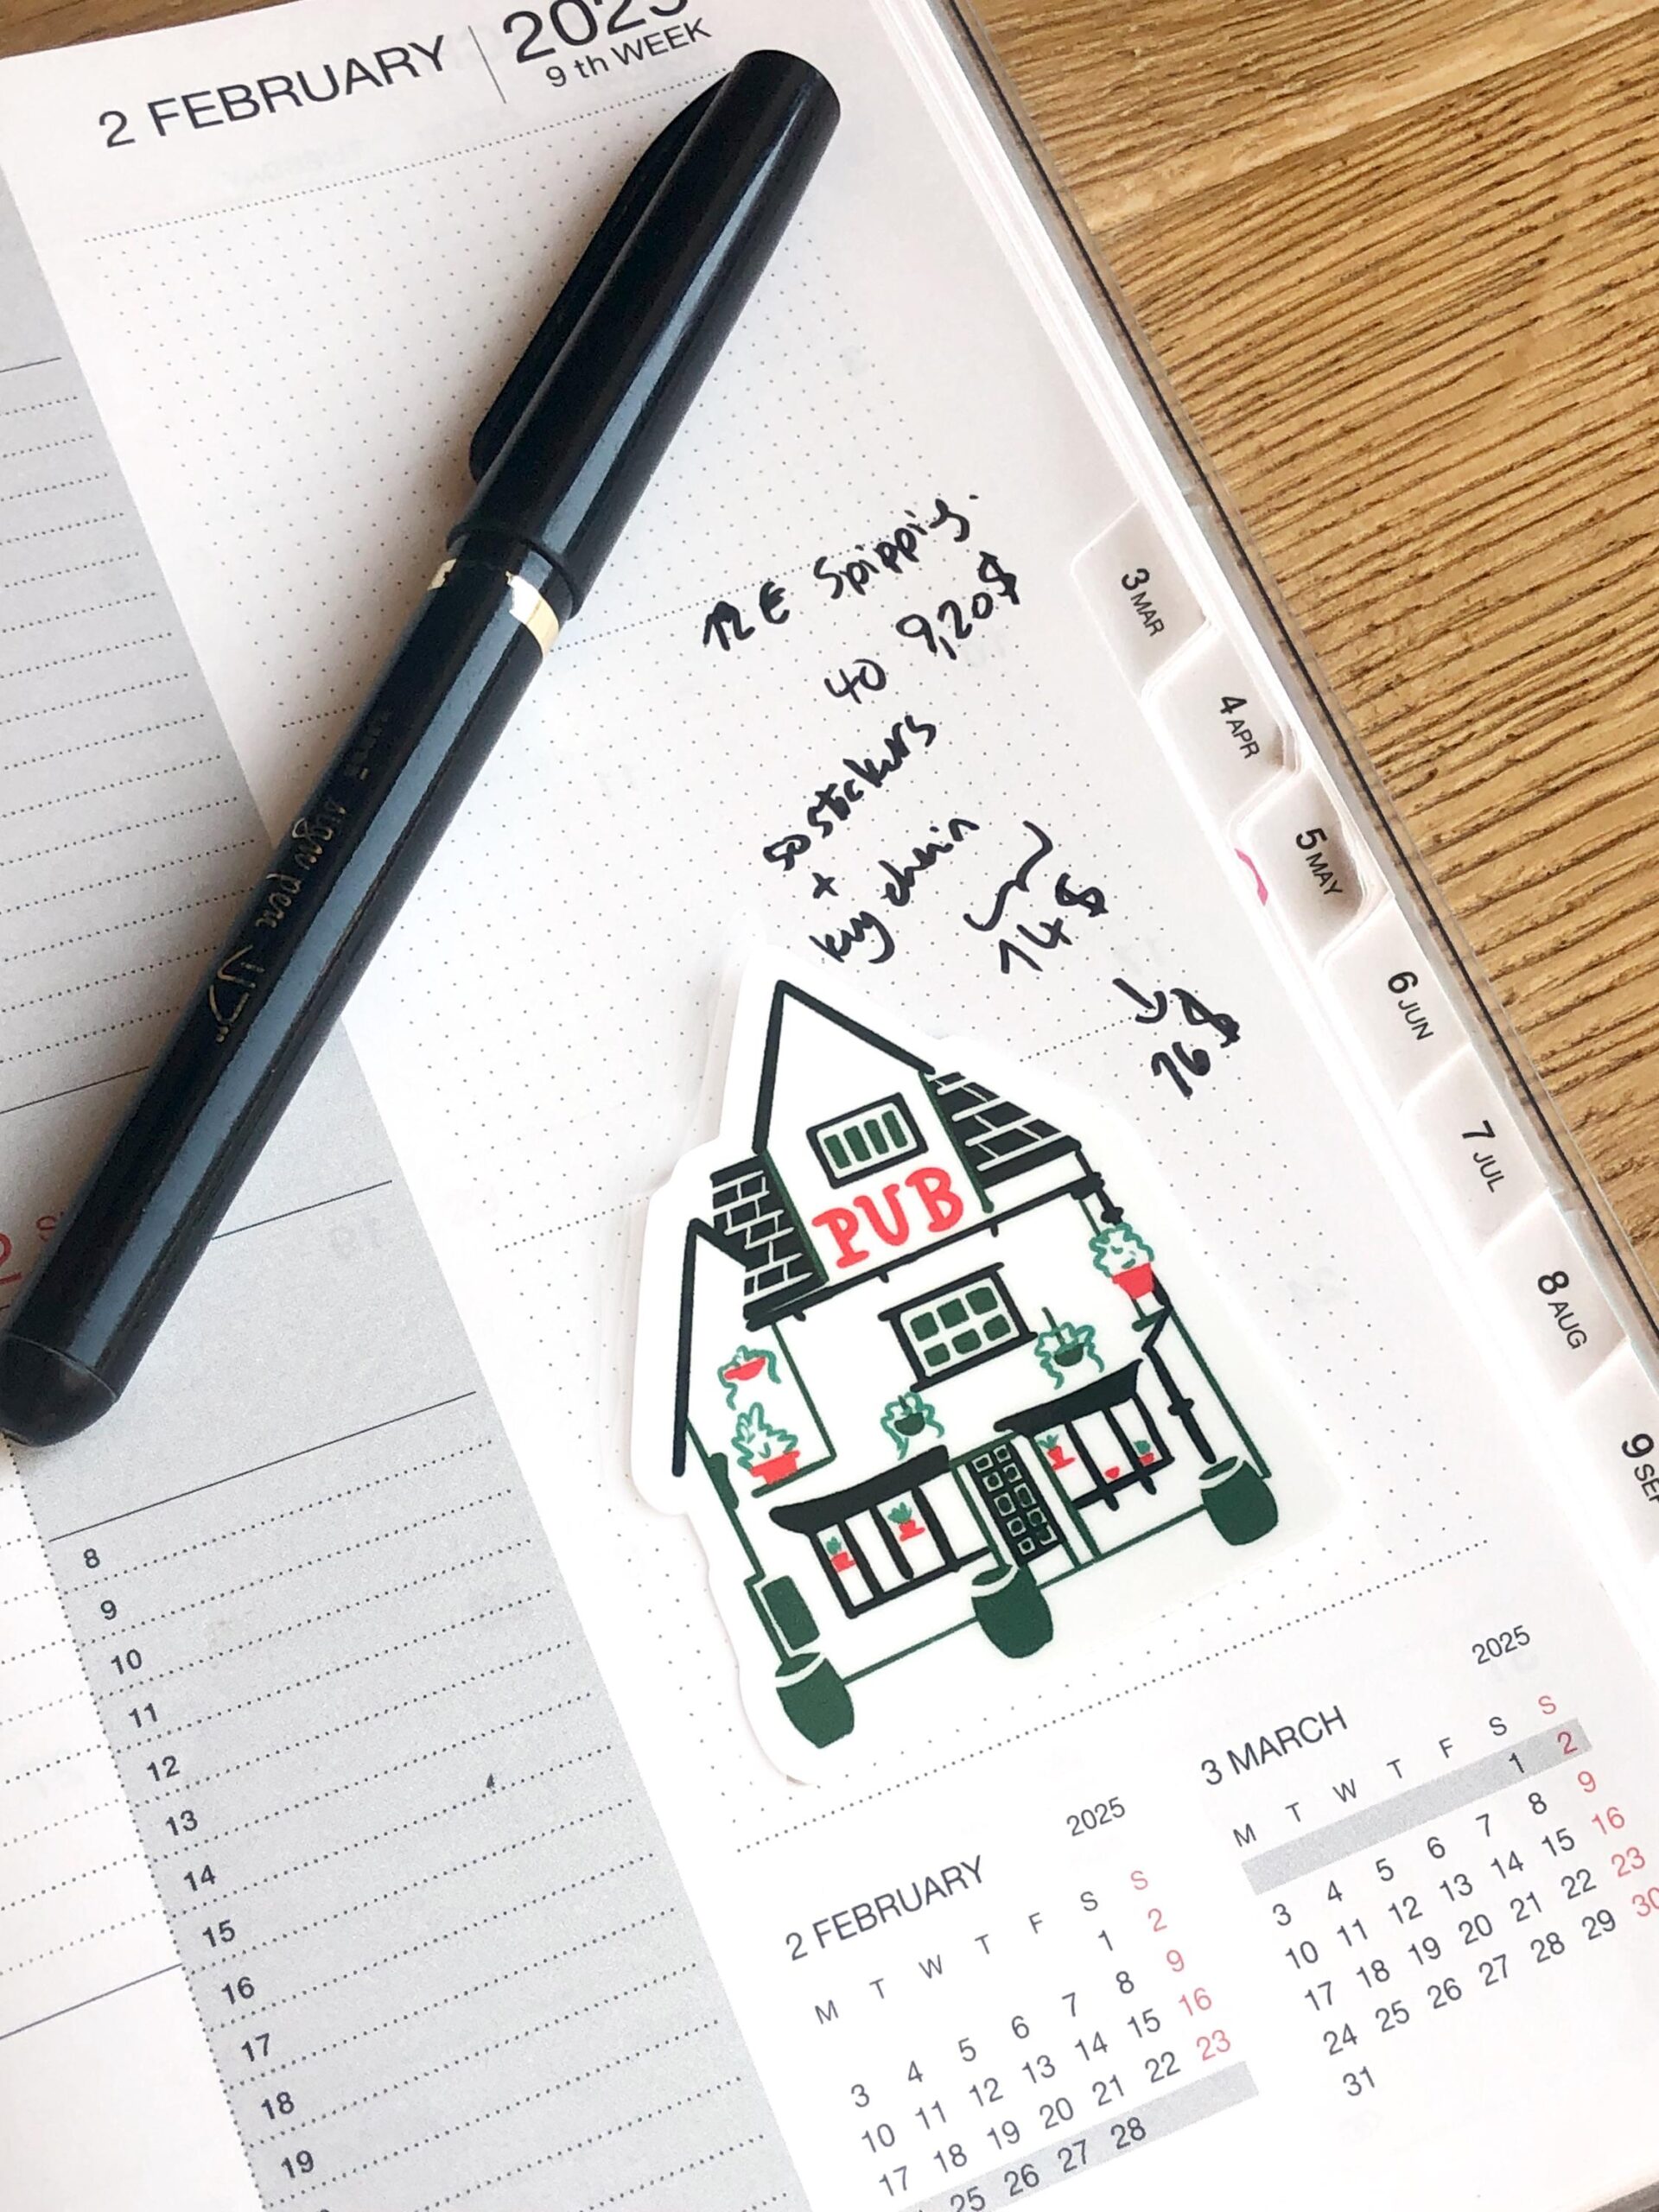 2 FEBRUARY 2025
9 th WEEK
12 € Spipping.
40 9,20$
50 stickers
+
key chain
14$
16$
PUB
sign pen
3 MAR
4 APR
5 MAY
6 JUN
7 JUL
8 AUG
9 SEP
8
9
10
11
12
13
14
15
16
17
18
19
2 FEBRUARY 2025
M T W T F S S
1 2
3 4 5 6 7 8 9
10 11 12 13 14 15 16
17 18 19 20 21 22 23
25 26 27 28
3 MARCH 2025
M T W T F S S
1 2
3 4 5 6 7 8 9
10 11 12 13 14 15 16
17 18 19 20 21 22 23
24 25 26 27 28 29 30
31